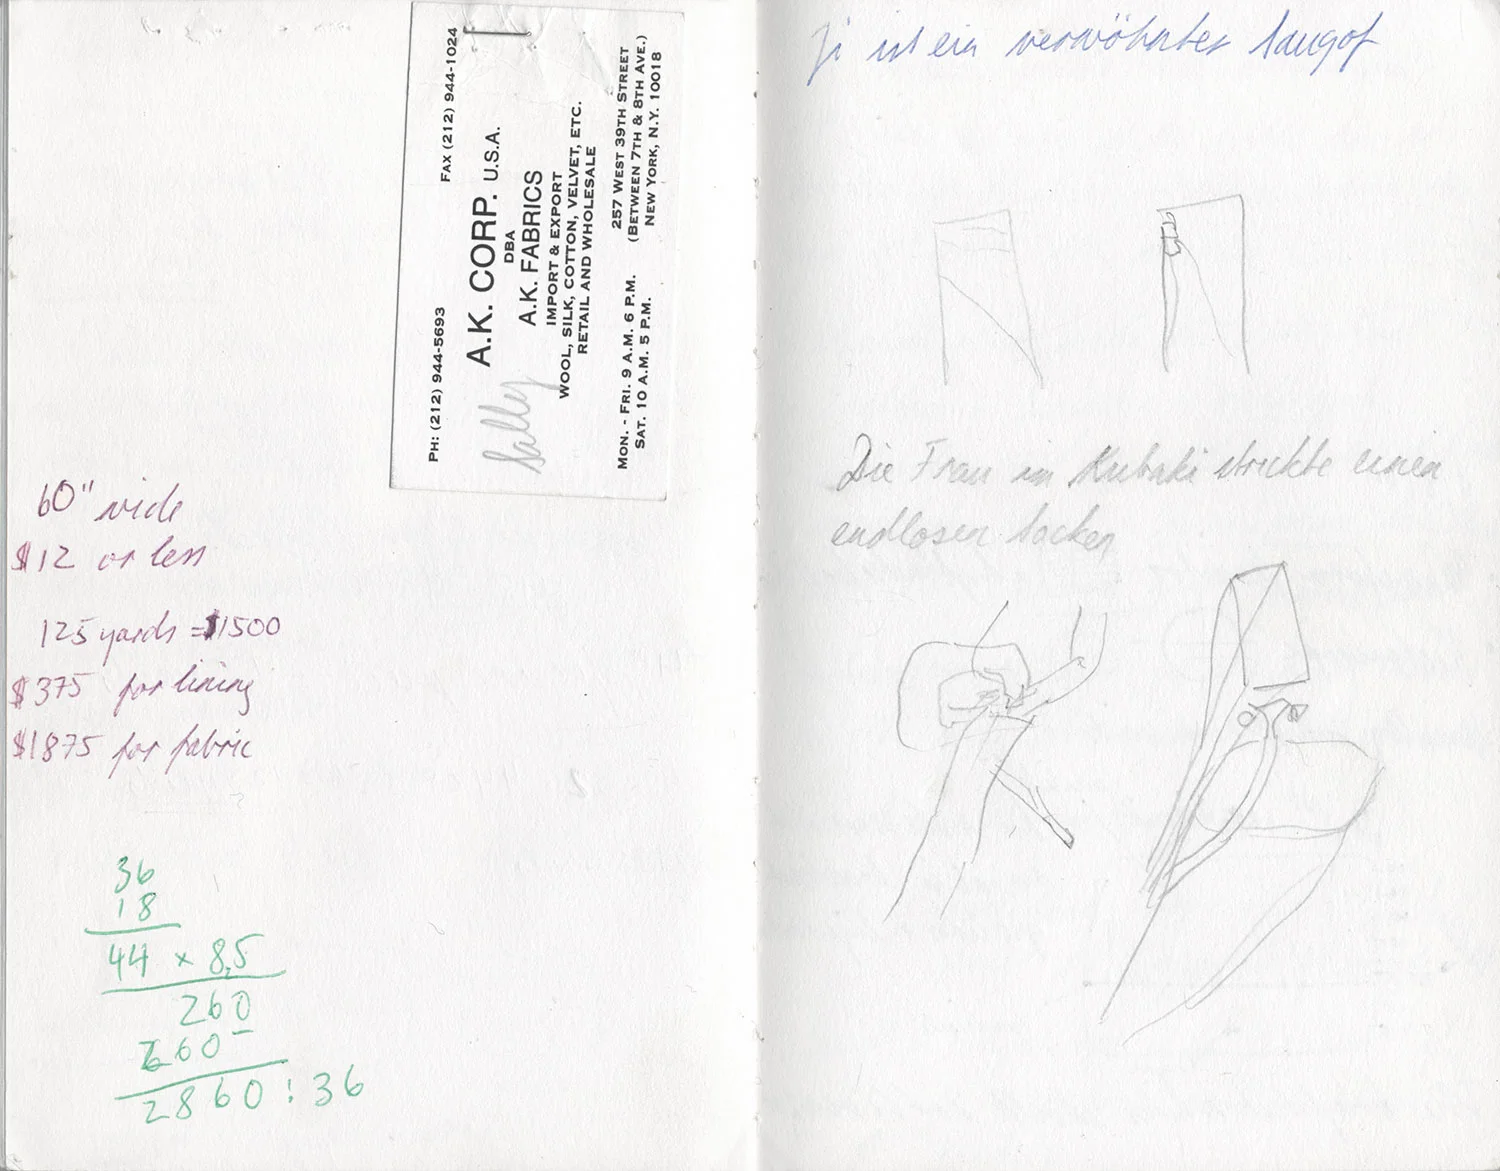 PH: (212) 944-5693 FAX (212) 944-1024
A.K. CORP. U.S.A.
DBA
A.K. FABRICS
IMPORT & EXPORT
WOOL, SILK, COTTON, VELVET, ETC.
RETAIL AND WHOLESALE
Sally
MON. - FRI. 9 A.M. 6 P.M.
SAT. 10 A.M. 5 P.M.
257 WEST 39TH STREET
(BETWEEN 7TH & 8TH AVE.)
NEW YORK, N.Y. 10018
60" wide
$12 or less
125 yards = $1500
$375 for lining
$1875 for fabric
36
18
44 x 8,5
260
260
2860 : 36
ist ein verwöhnter
Die Frau im Kubuki strickte einen
endlosen Socken